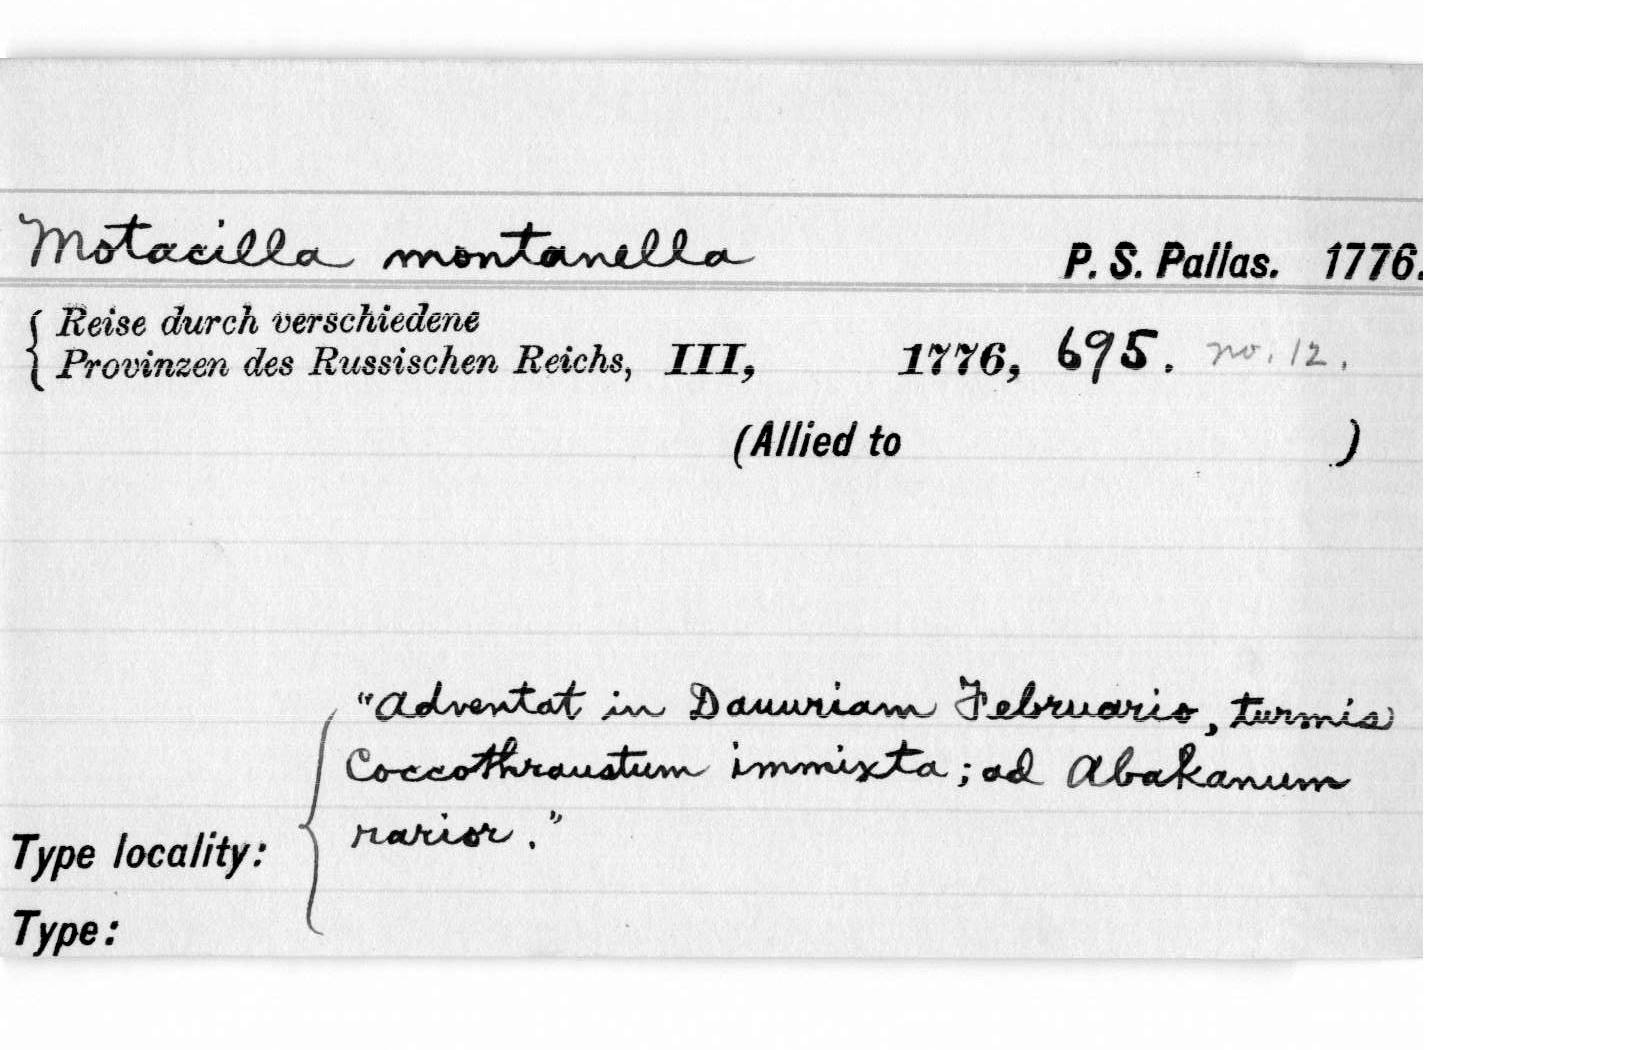 Motacilla montanella P. S. Pallas. 1776.
Reise durch verschiedene
Provinzen des Russischen Reichs, III, 1776, 695. no. 12.
(Allied to )
"Adventat in Dauuriam Februario, turmis
Coccothraustum immixta; ad Abakanum
rarior."
Type locality:
Type: